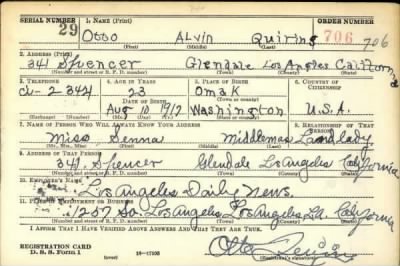 SERIAL NUMBER 29 1. NAME (Print) ORDER NUMBER
Otto ALVIN Quiring 706 706
(First) (Middle) (Last)
2. ADDRESS (Print)
341 Spencer Glendale Los Angeles California
(Number and street or R. F. D. number) (Town) (County) (State)
3. TELEPHONE 4. AGE IN YEARS 5. PLACE OF BIRTH 6. COUNTRY OF CITIZENSHIP
23 Omak
2344 DATE OF BIRTH (Town or county)
Aug 10 1917 Washington U.S.A.
(Exchange) (Number) (Mo.) (Day) (Yr.) (State or country)
7. NAME OF PERSON WHO WILL ALWAYS KNOW YOUR ADDRESS 8. RELATIONSHIP OF THAT PERSON
Miss Middlemas Landlady
(Mr., Mrs., Miss) (First) (Middle) (Last)
9. ADDRESS OF THAT PERSON
341 Spencer Glendale Los Angeles California
(Number and street or R. F. D. number) (Town) (County) (State)
10. EMPLOYER'S NAME
Los Angeles Daily News.
11. PLACE OF EMPLOYMENT OR BUSINESS
1257 So Los Angeles, Los Angeles, La. California
(Number and street or R. F. D. number) (Town) (County) (State)
I AFFIRM THAT I HAVE VERIFIED ABOVE ANSWERS AND THAT THEY ARE TRUE.
REGISTRATION CARD
D. S. S. Form 1 16—17105